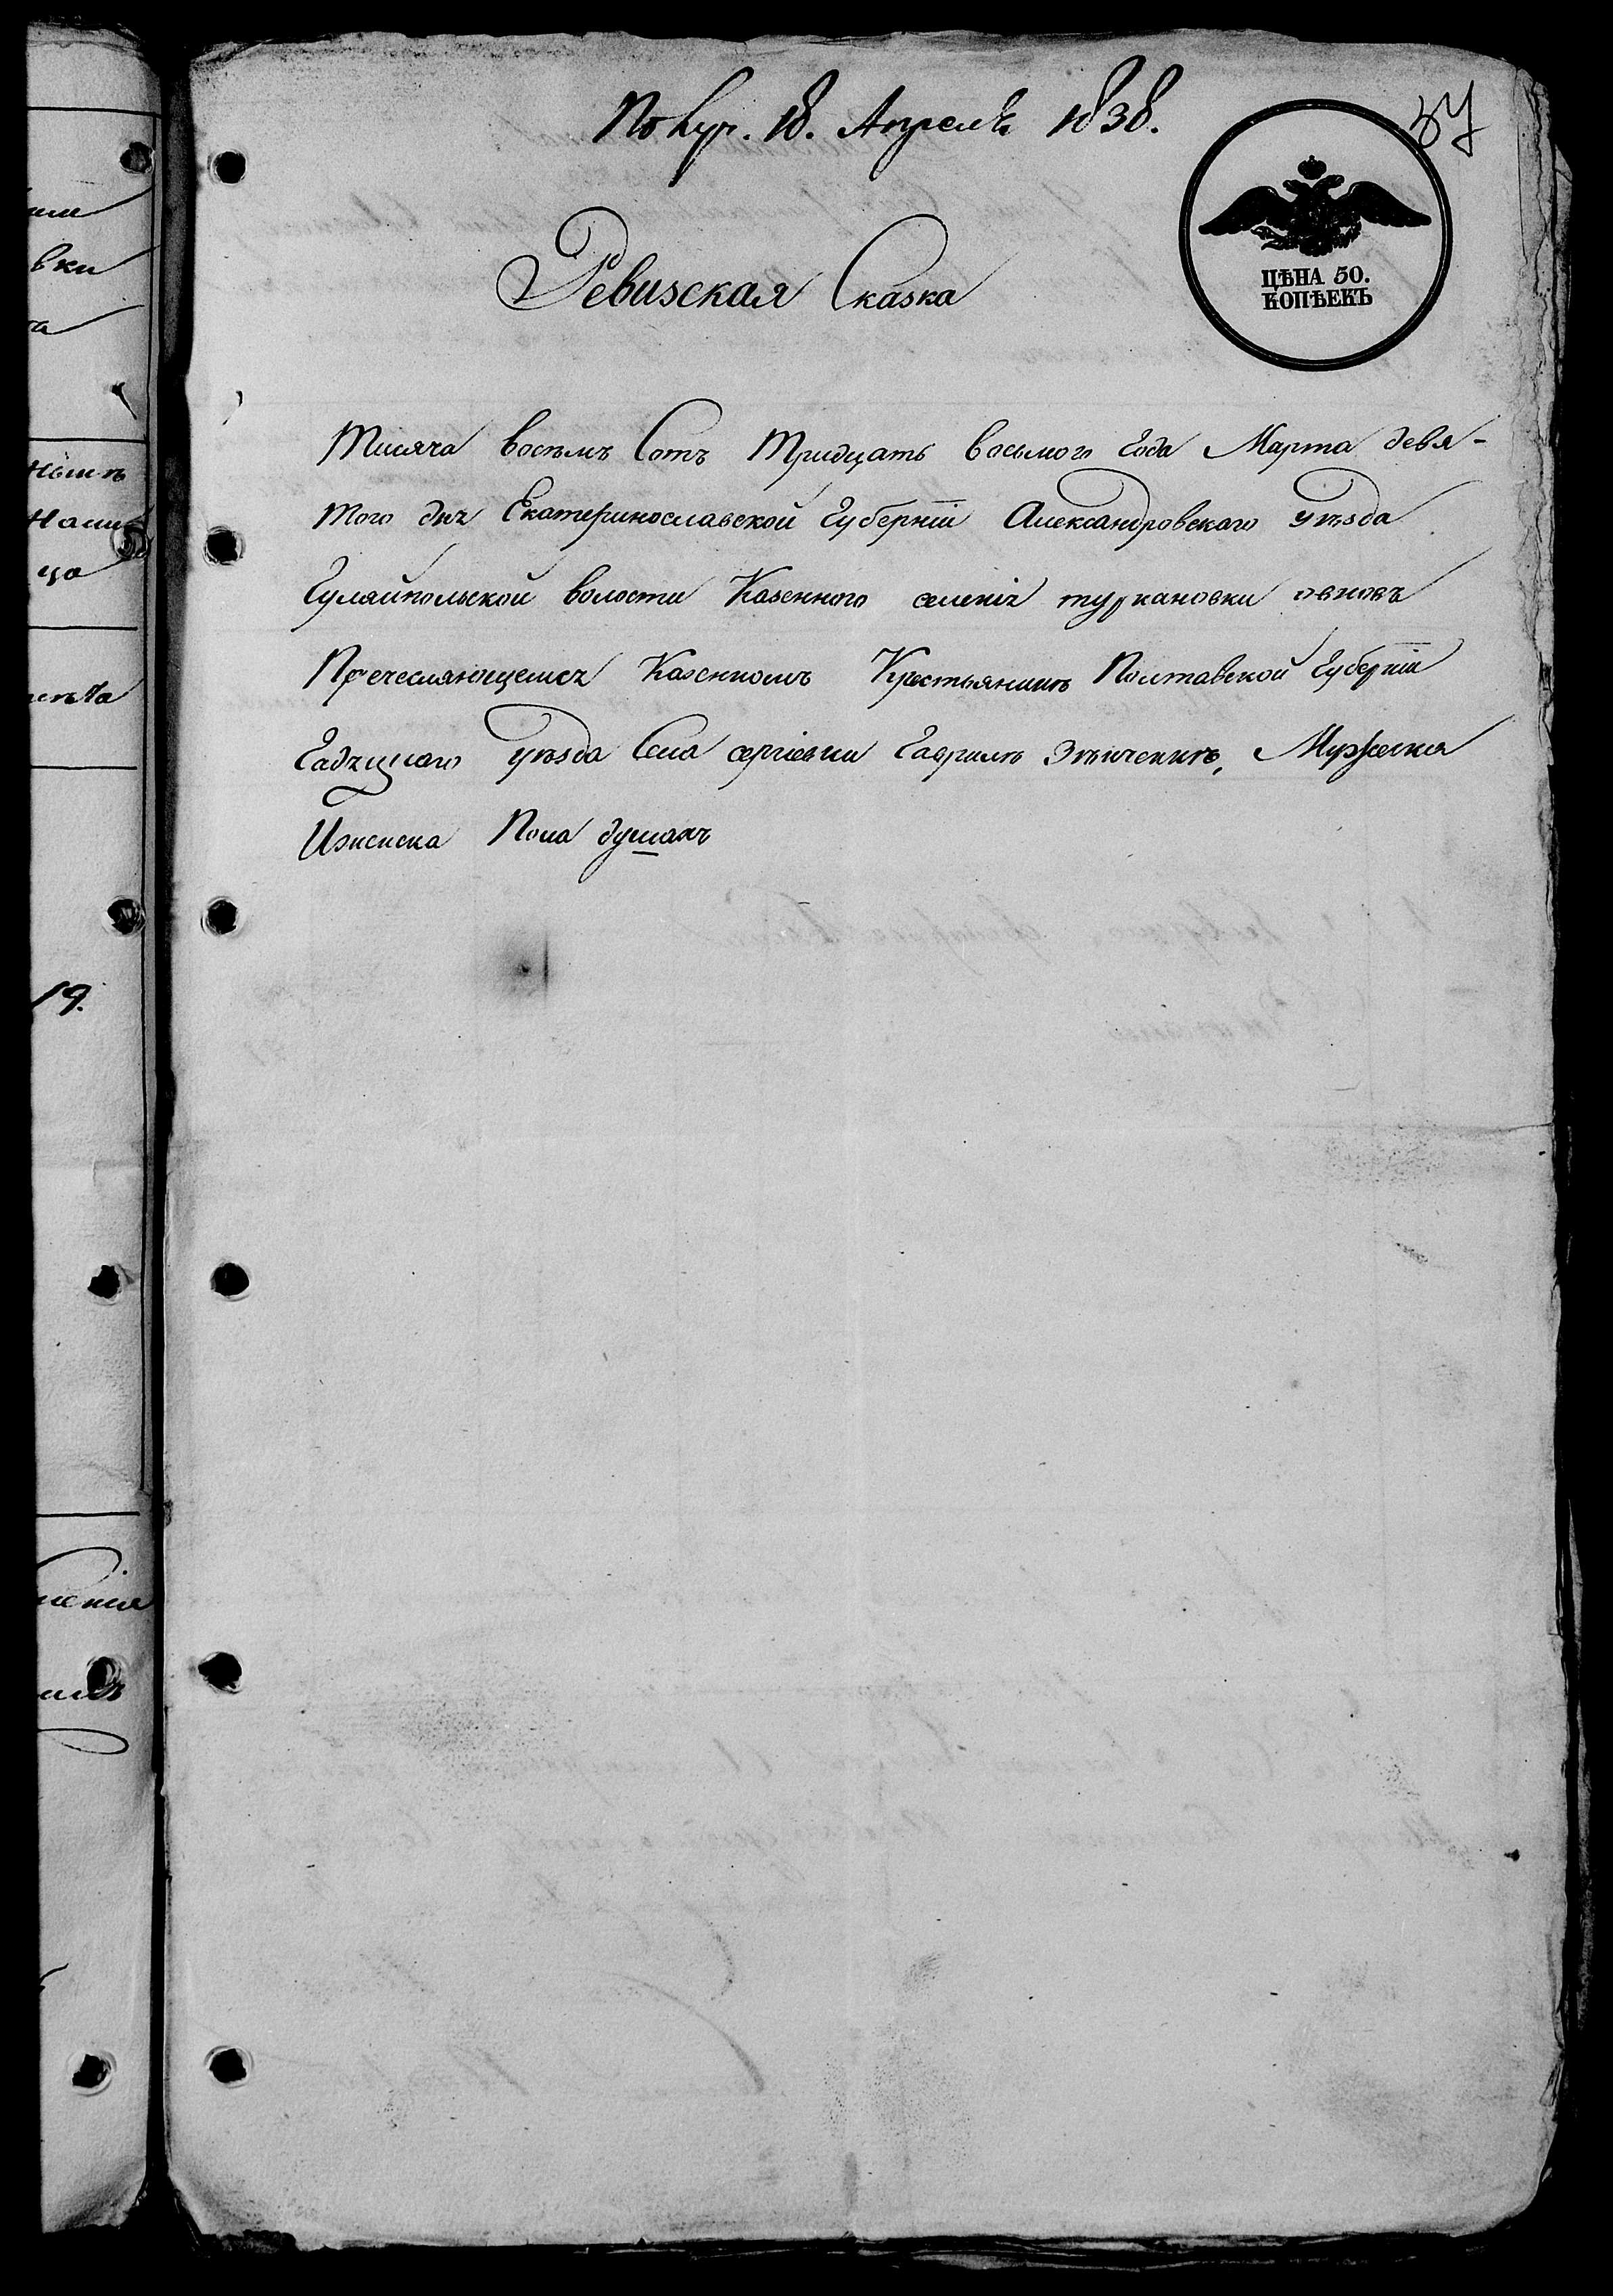 Получ. 18. Апреля 1838.
57
ЦѢНА 50.
КОПѢЕКЪ
Ревизская Сказка
Тисяча восѣмъ Сотъ Тридцать восьмого Года Марта девя-
того дня Екатеринославской Губерніи Александровскаго уѣзда
Гуляйпольской волости Казенного селенія туркановки овновь
Пречесляющемся Казенномъ Крестьянинѣ Полтавской Губерніи
Гадяцкаго уѣзда Села сергіевки Гаврилѣ, Мужеска
Иженска Пола душахъ
вки
19.